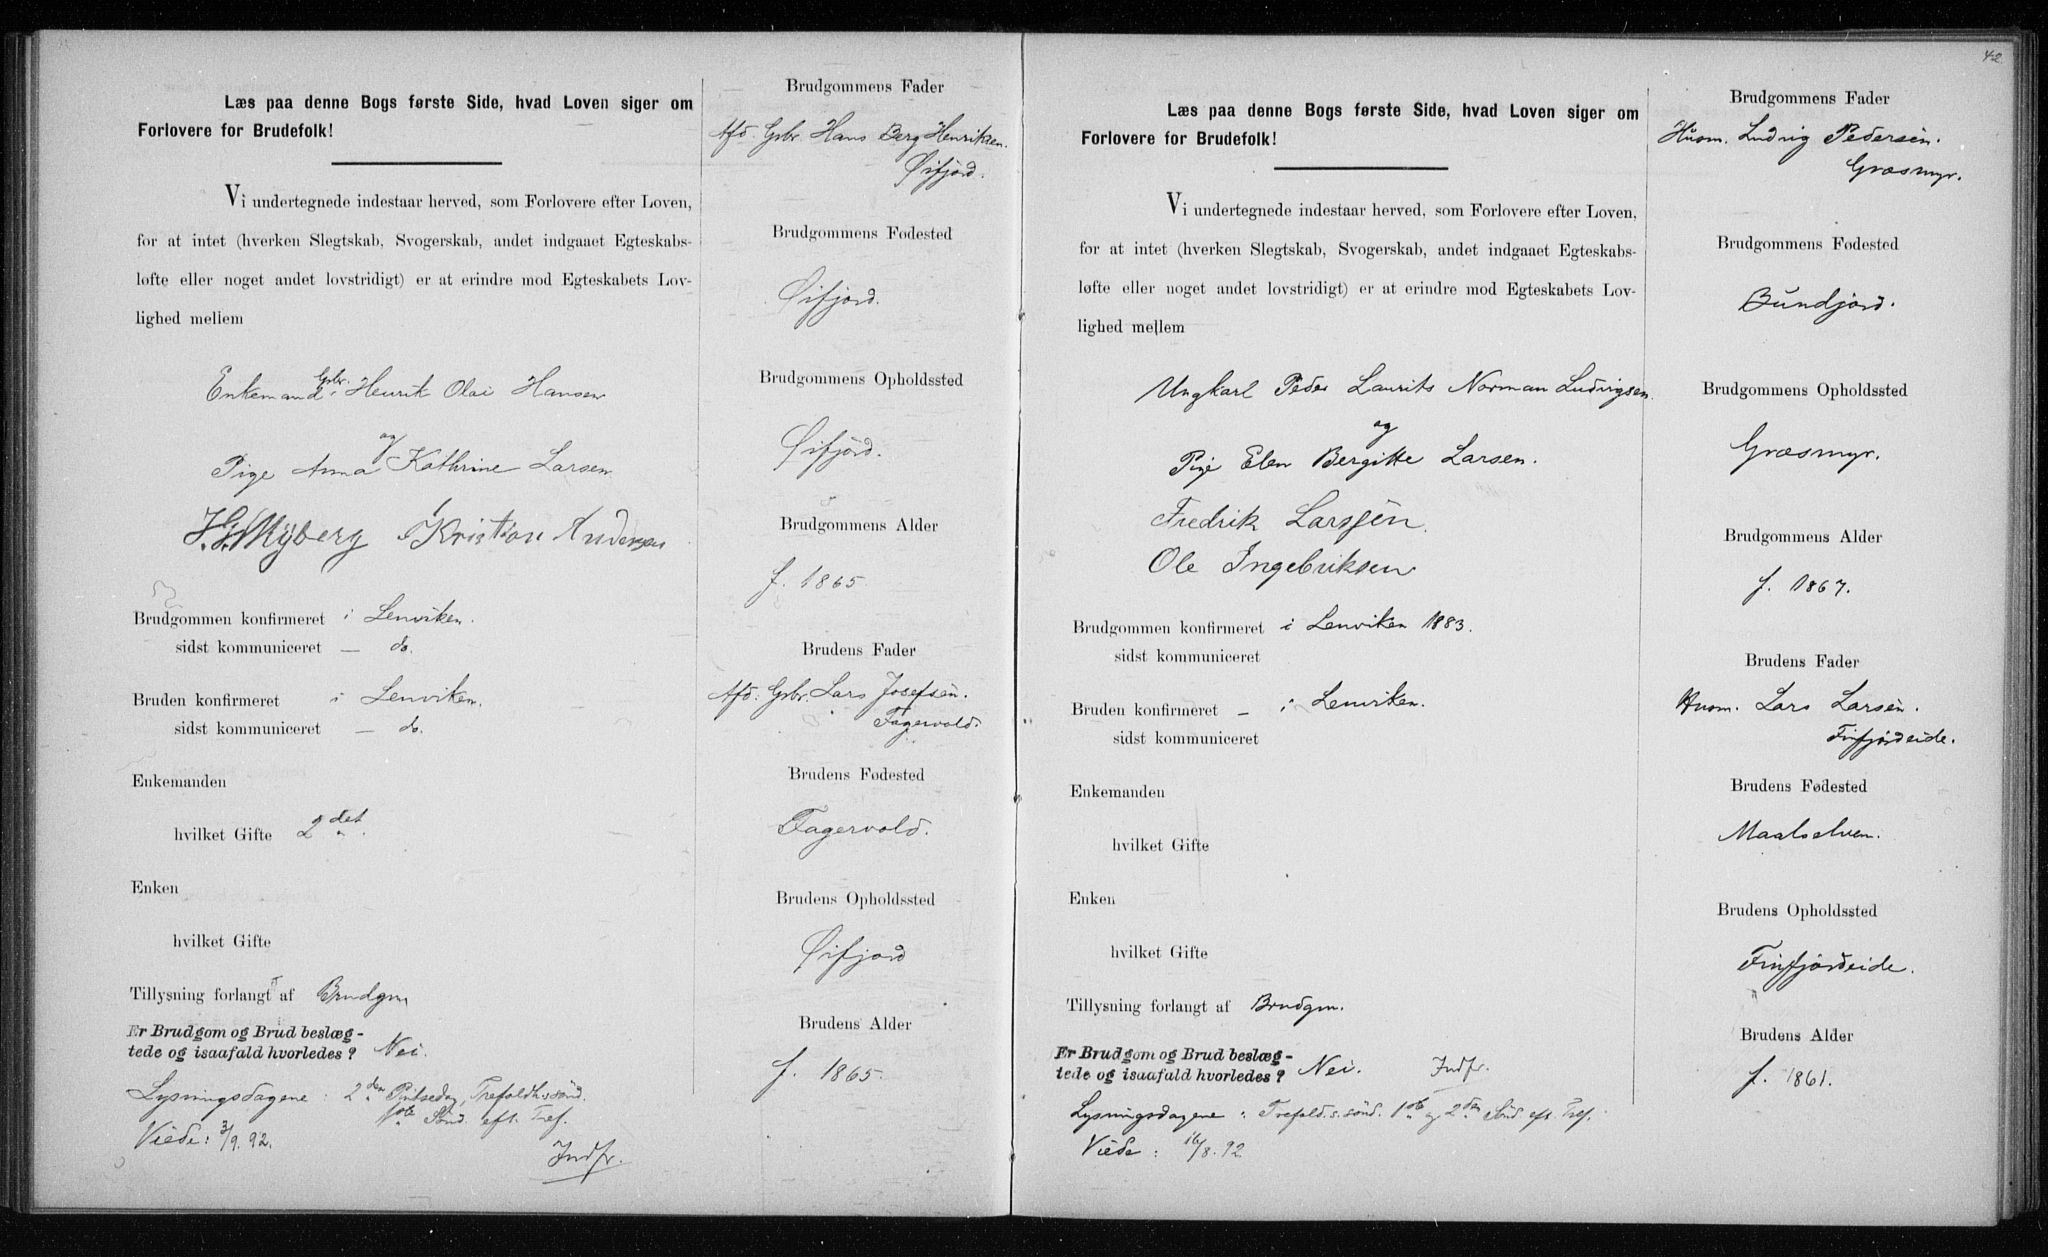 Læs paa denne Bogs første Side, hvad Loven siger om
Forlovere for Brudefolk!
Vi undertegnede indestaar herved, som Forlovere efter Loven,
for at intet (hverken Slegtskab, Svogerskab, andet indgaaet Egteskabs-
løfte eller noget andet lovstridigt) er at erindre mod Egteskabets Lov-
lighed mellem
Enkemand Gbr. Henrik Olai Hansen
og
Pige Anna Kathrine Larsen
Myberg Kristian Andersen
Brudgommen konfirmeret i Lenviken.
sidst kommuniceret — do.
Bruden konfirmeret i Lenviken.
sidst kommuniceret — do.
Enkemanden
hvilket Gifte 2det.
Enken
hvilket Gifte
Tillysning forlangt af Brudgm
Er Brudgom og Brud beslæg-
tede og isaafald hvorledes? Nei.
Lysningsdagene: 2den Pintsedag, Trefoldh.sønd.
1ste Sønd. eft. Tref.
Viede: 3/9. 92.
Indfr.
Brudgommens Fader
Afd. Gbr. Hans Berg Henriksen.
Øifjord.
Brudgommens Fødested
Øifjord.
Brudgommens Opholdssted
Øifjord.
Brudgommens Alder
f. 1865
Brudens Fader
Afd: Gbr. Lars Josefsen.
Fagervold.
Brudens Fødested
Fagervold.
Brudens Opholdssted
Øifjord
Brudens Alder
f. 1865.
42
Læs paa denne Bogs første Side, hvad Loven siger om
Forlovere for Brudefolk!
Vi undertegnede indestaar herved, som Forlovere efter Loven,
for at intet (hverken Slegtskab, Svogerskab, andet indgaaet Egteskabs-
løfte eller noget andet lovstridigt) er at erindre mod Egteskabets Lov-
lighed mellem
Ungkarl Peder Laurits Norman Ludvigsen.
og
Pige Elen Bergitte Larsen.
Fredrik Larssen.
Ole Ingebriksen
Brudgommen konfirmeret i Lenviken 1883.
sidst kommuniceret
Bruden konfirmeret – i Lenviken.
sidst kommuniceret
Enkemanden
hvilket Gifte
Enken
hvilket Gifte
Tillysning forlangt af Brudgm.
Er Brudgom og Brud beslæg-
tede og isaafald hvorledes? Nei. Indfr.
Lysningsdagene: Trefold.s.sønd. 1ste og 2den Sønd eft. Tref.
Viede: 16/8. 92
Brudgommens Fader
Husm. Ludvig Pedersen.
Græsmyr.
Brudgommens Fødested
Bundjord.
Brudgommens Opholdssted
Græsmyr.
Brudgommens Alder
f. 1867.
Brudens Fader
Husm. Lars Larsen.
Finfjordeide.
Brudens Fødested
Maalselven.
Brudens Opholdssted
Finfjordeide.
Brudens Alder
f. 1861.